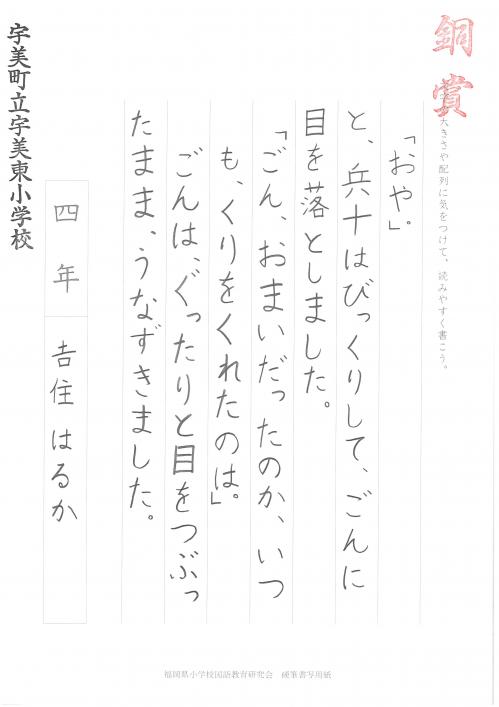 銅賞
大きさや配列に気をつけて、読みやすく書こう。
「おや」。
と、兵十はびっくりして、ごんに
目を落としました。
「ごん、おまいだったのか、いつ
も、くりをくれたのは。」
ごんは、ぐったりと目をつぶっ
たまま、うなずきました。
四年 吉住はるか
宇美町立宇美東小学校
福岡県小学校国語教育研究会 硬筆書写用紙